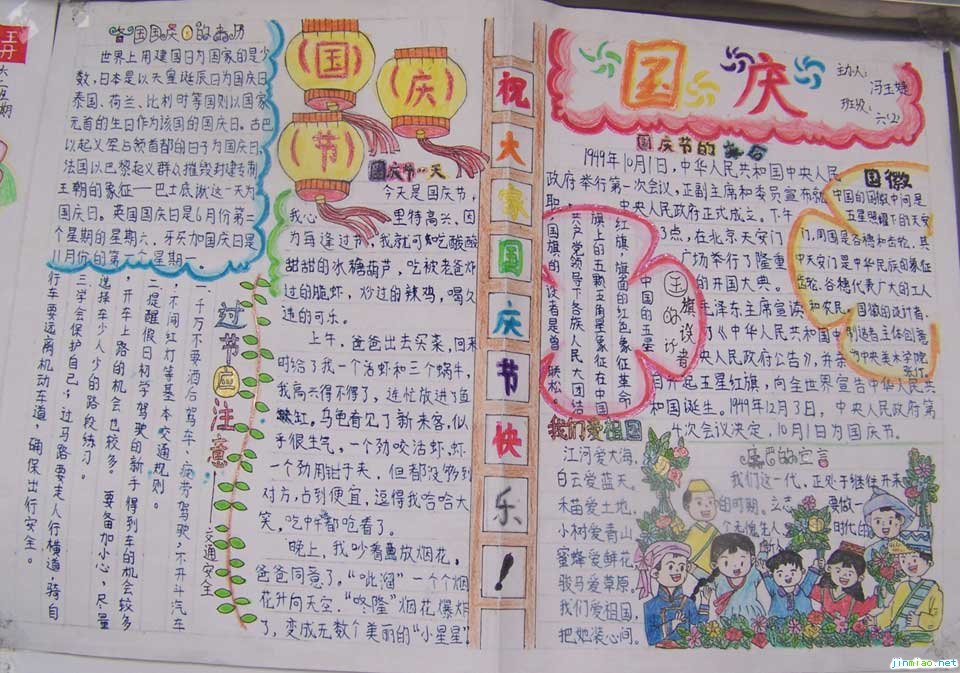 各国国庆日的来历
世界上用建国日为国家的是少
数,日本是以天皇诞辰日为国庆日
泰国、荷兰、比利时等国则以国家
元首的生日作为该国的国庆日。古巴
以起义军占领首都的日子为国庆日
法国以巴黎起义群众摧毁封建专制
王朝的象征——巴士底狱这一天为
国庆日。英国国庆日是6月份第二
个星期的星期六,牙买加国庆日是
月份的第一个星期一。
过节应注意
交通安全
一千万不要酒后驾车、疲劳驾驶,不开斗汽车
,不闯红灯等基本交通规则。
二提醒假日初学驾驶的新手得到车的机会较多
,开车上路的机会也较多。要备加小心,尽量
选择车少人少的路段练习。
三学会保护自己,过马路要走人行横道,骑自
行车要远离机动车道,确保出行安全。
国
庆
节
国庆节一天
今天是国庆节,
我心里特高兴、因
为每逢过节,我就可以吃酸酸
甜甜的冰糖葫芦,吃被老爸炸
过的脆虾,炒过的辣鸡,喝久
违的可乐。
上午,爸爸出去买菜,回来
时给了我一个活虾和三个蜗牛,
我高兴得不得了,连忙放进了鱼
缸。乌龟看见了新来客,似
乎很生气,一个劲咬活虾,虾
一个劲用钳子夹,但都没够到
对方,占到便宜,逗得我哈哈大
笑,吃午都呛着了。
晚上,我吵着要放烟花,
爸爸同意了。“呲溜”一个个烟
花升向天空.“咚隆”烟花爆炸
了,变成无数个美丽的“小星星”
祝
大
家
国
庆
节
快
乐
!
国庆
主办人:冯玉
班级:六(2)
国庆节的
1949年10月1日,中华人民共和国中央人民
政府举行第一次会议,正副主席和委员宣布就
职,中央人民政府正式成立。下午
3点,在北京天安门
广场举行了隆重
的开国大典。
毛泽东主席宣读
了《中华人民共和国中
央人民政府公告》,并亲
自升起五星红旗,向全世界宣告中华人民共
和国诞生。1949年12月3日,中央人民政府第
4次会议决定,10月1日为国庆节。
国旗的设计者
中国的五星
红旗,旗面的红色象征革命,
旗上的五颗五角星象征在中国
共产党领导下各族人民大团结
国旗的设计者是曾联松。
国徽
中国的国徽中间是
五星照耀下的天安
门,周围是谷穗和齿轮,其
中天安门是中华民族的象征
齿轮、谷穗代表广大的工人
和农民。国徽的设计者、
创造者主体创意
为中央美术学院
张仃。
我们爱祖国
江河爱大海,
白云爱蓝天。
禾苗爱土地,
小树爱青山
蜜蜂爱鲜花,
骏马爱草原,
我们爱祖国,
把她装心间。
的宣言
我们这一代,正处于继往开来
的时期。立志要做一
个无愧生人时代的
jinmiao.net